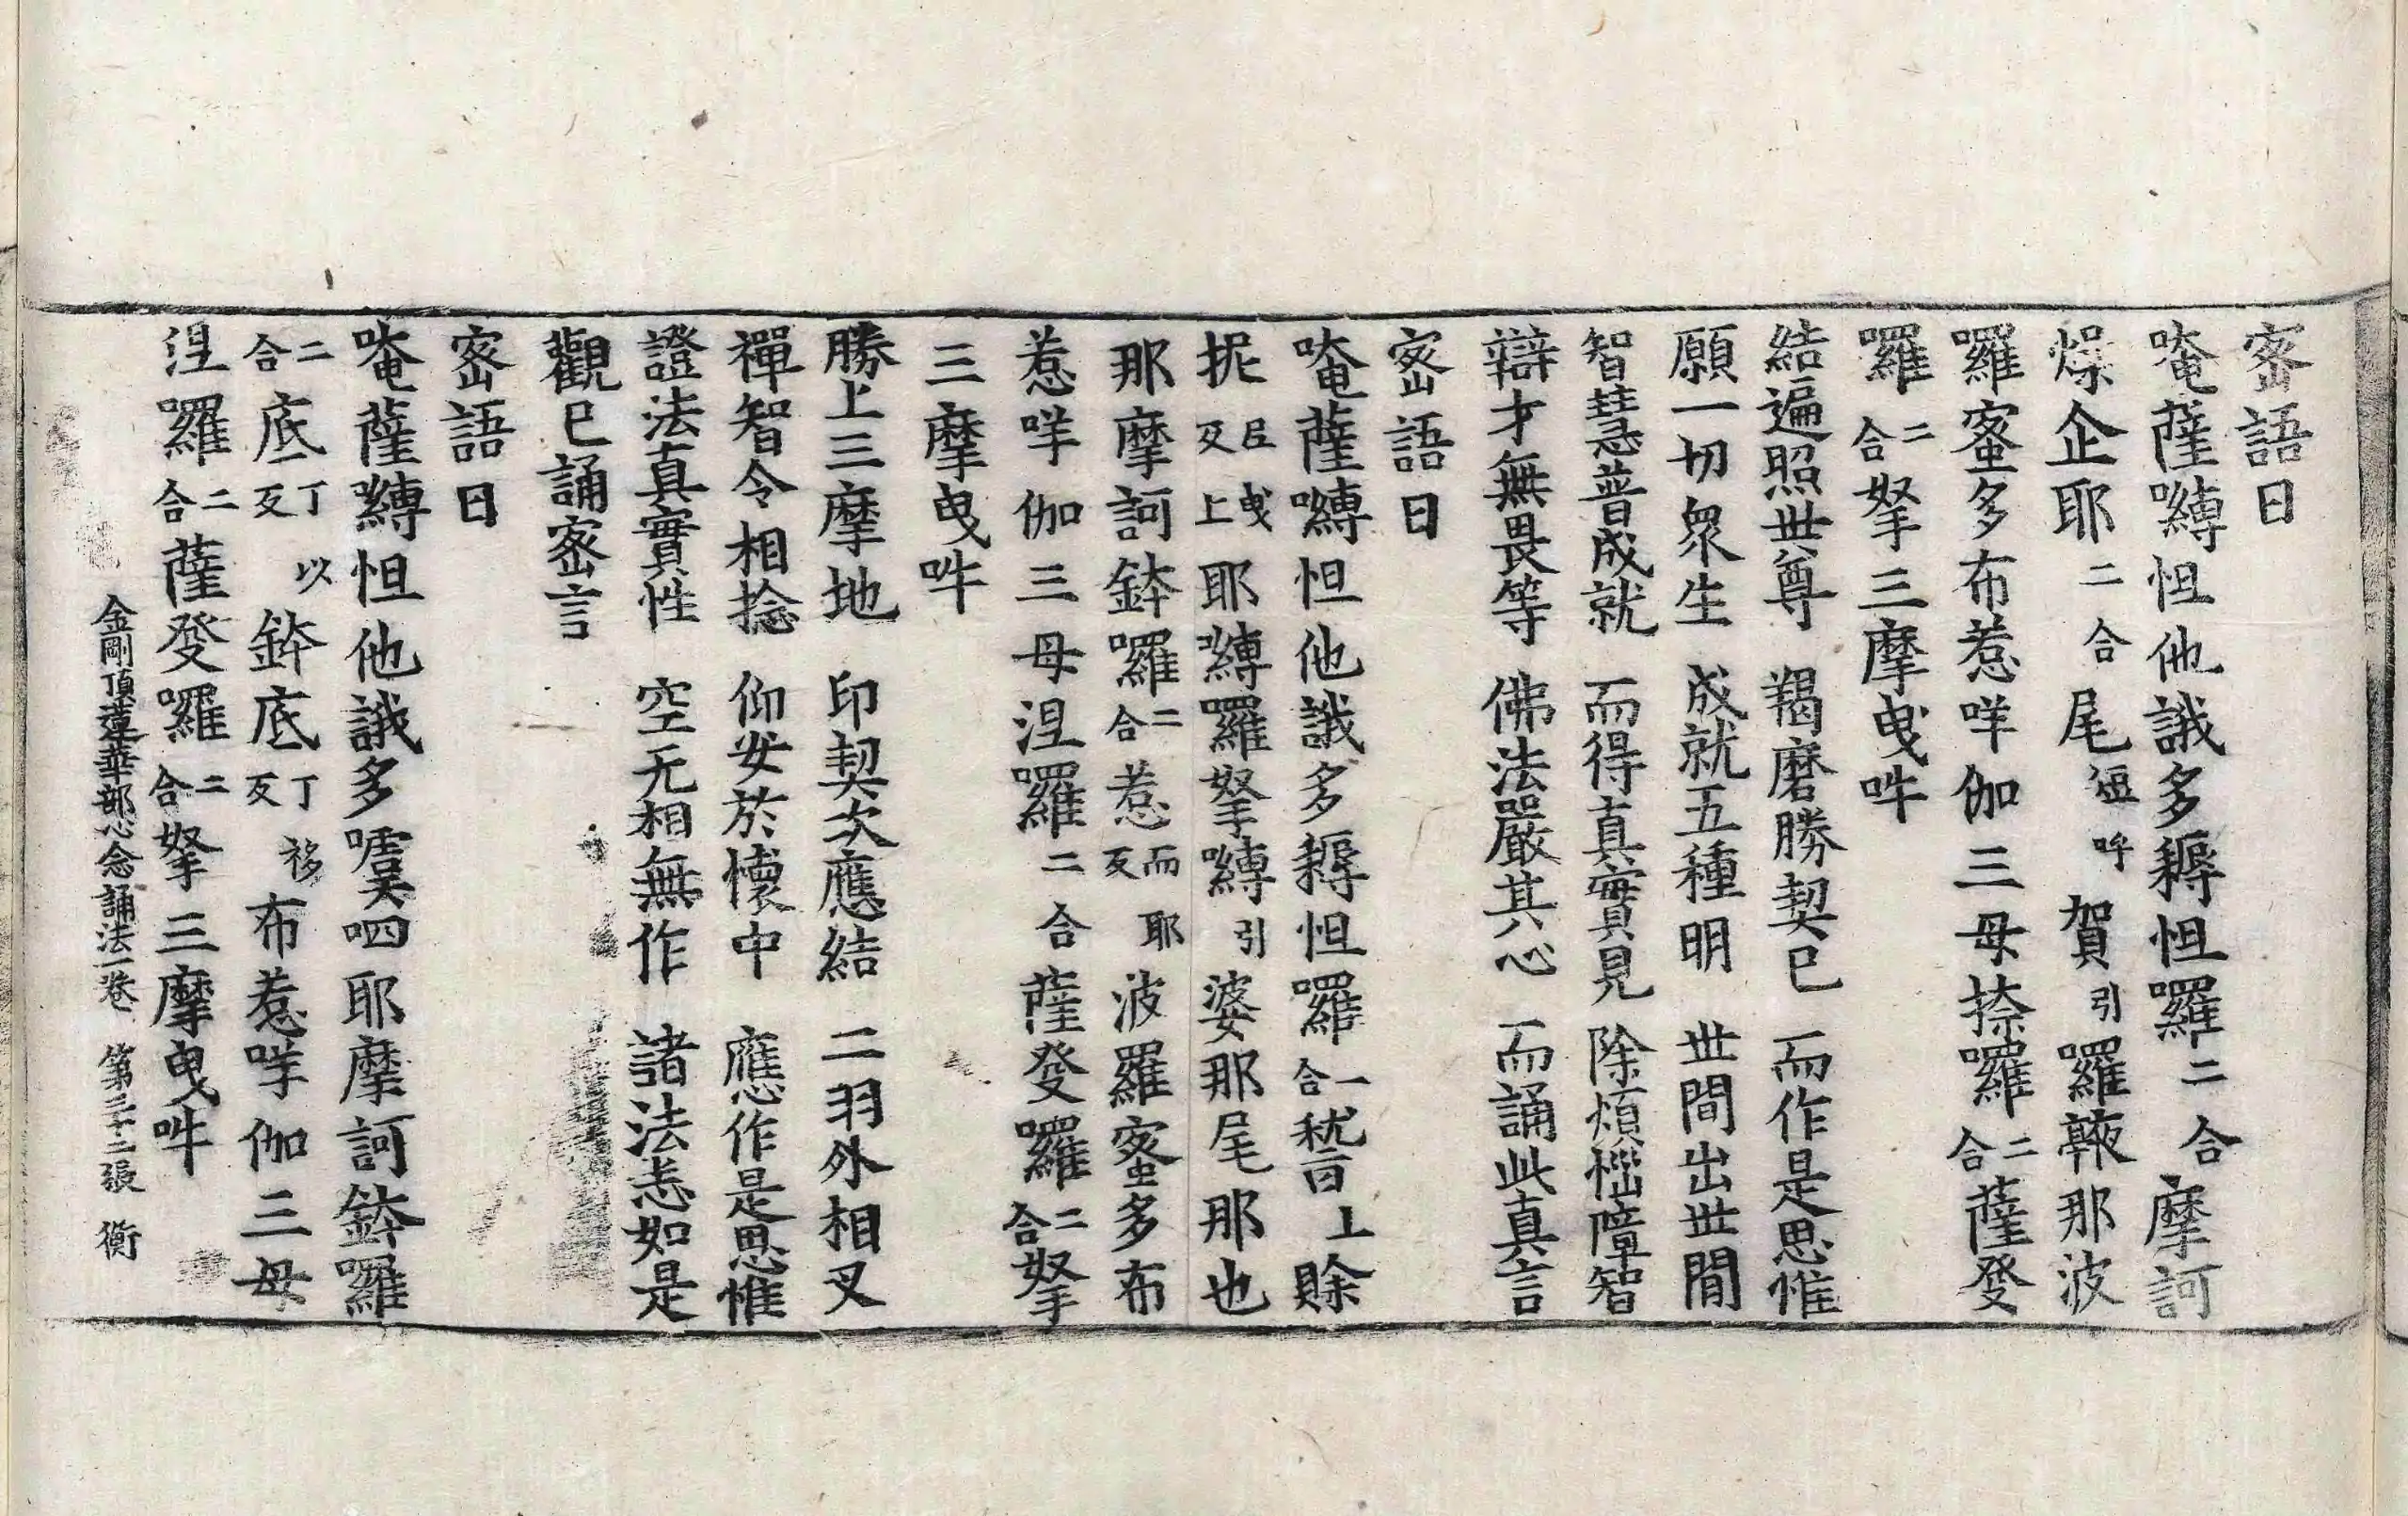 密語曰
唵薩嚩怛他誐多耨怛囉二合摩訶
燥企耶二合尾短哞賀引囉鞁那波
羅蜜多布惹咩伽三母捺囉二合薩發
囉二合拏三摩曳吽
結遍照世尊　羯磨勝契已　而作是思惟
願一切衆生　成就五種明　世間出世間
智慧普成就　而得真實見　除煩惱障智
辯才無畏等　佛法嚴其心　而誦此真言
密語曰
唵薩嚩怛他誐多耨怛囉一合嵇上賒
抳尼曳反上耶嚩囉拏嚩引婆那尾那也
那摩訶鉢囉二合惹而耶反波羅蜜多布
惹咩伽三母涅囉二合薩發囉二合拏
三摩曳吽
勝上三摩地　印契次應結　二羽外相叉
禪智令相捻　仰安於懷中　應作是思惟
證法真實性　空无相無作　諸法悉如是
觀已誦密言
密語曰
唵薩嚩怛他誐多嚘呬耶摩訶鉢囉
二合底丁以反鉢底丁移反布惹咩伽三母
涅囉二合薩發囉二合拏三摩曳吽
金剛頂蓮華部心念誦法一卷　第二十二張　衡